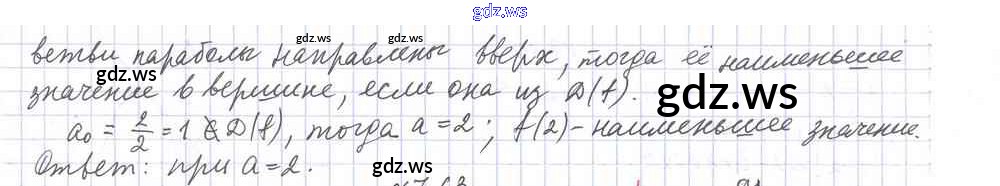 gdz.ws
ветви параболы направлены вверх, тогда её наименьшее
gdz.ws gdz.ws gdz.ws
значение в вершине, если она из D(f).
gdz.ws
a₀ = 2/2 = 1 ∉ D(f), тогда a = 2; f(2) - наименьшее значение.
Ответ: при a = 2.
gdz.ws